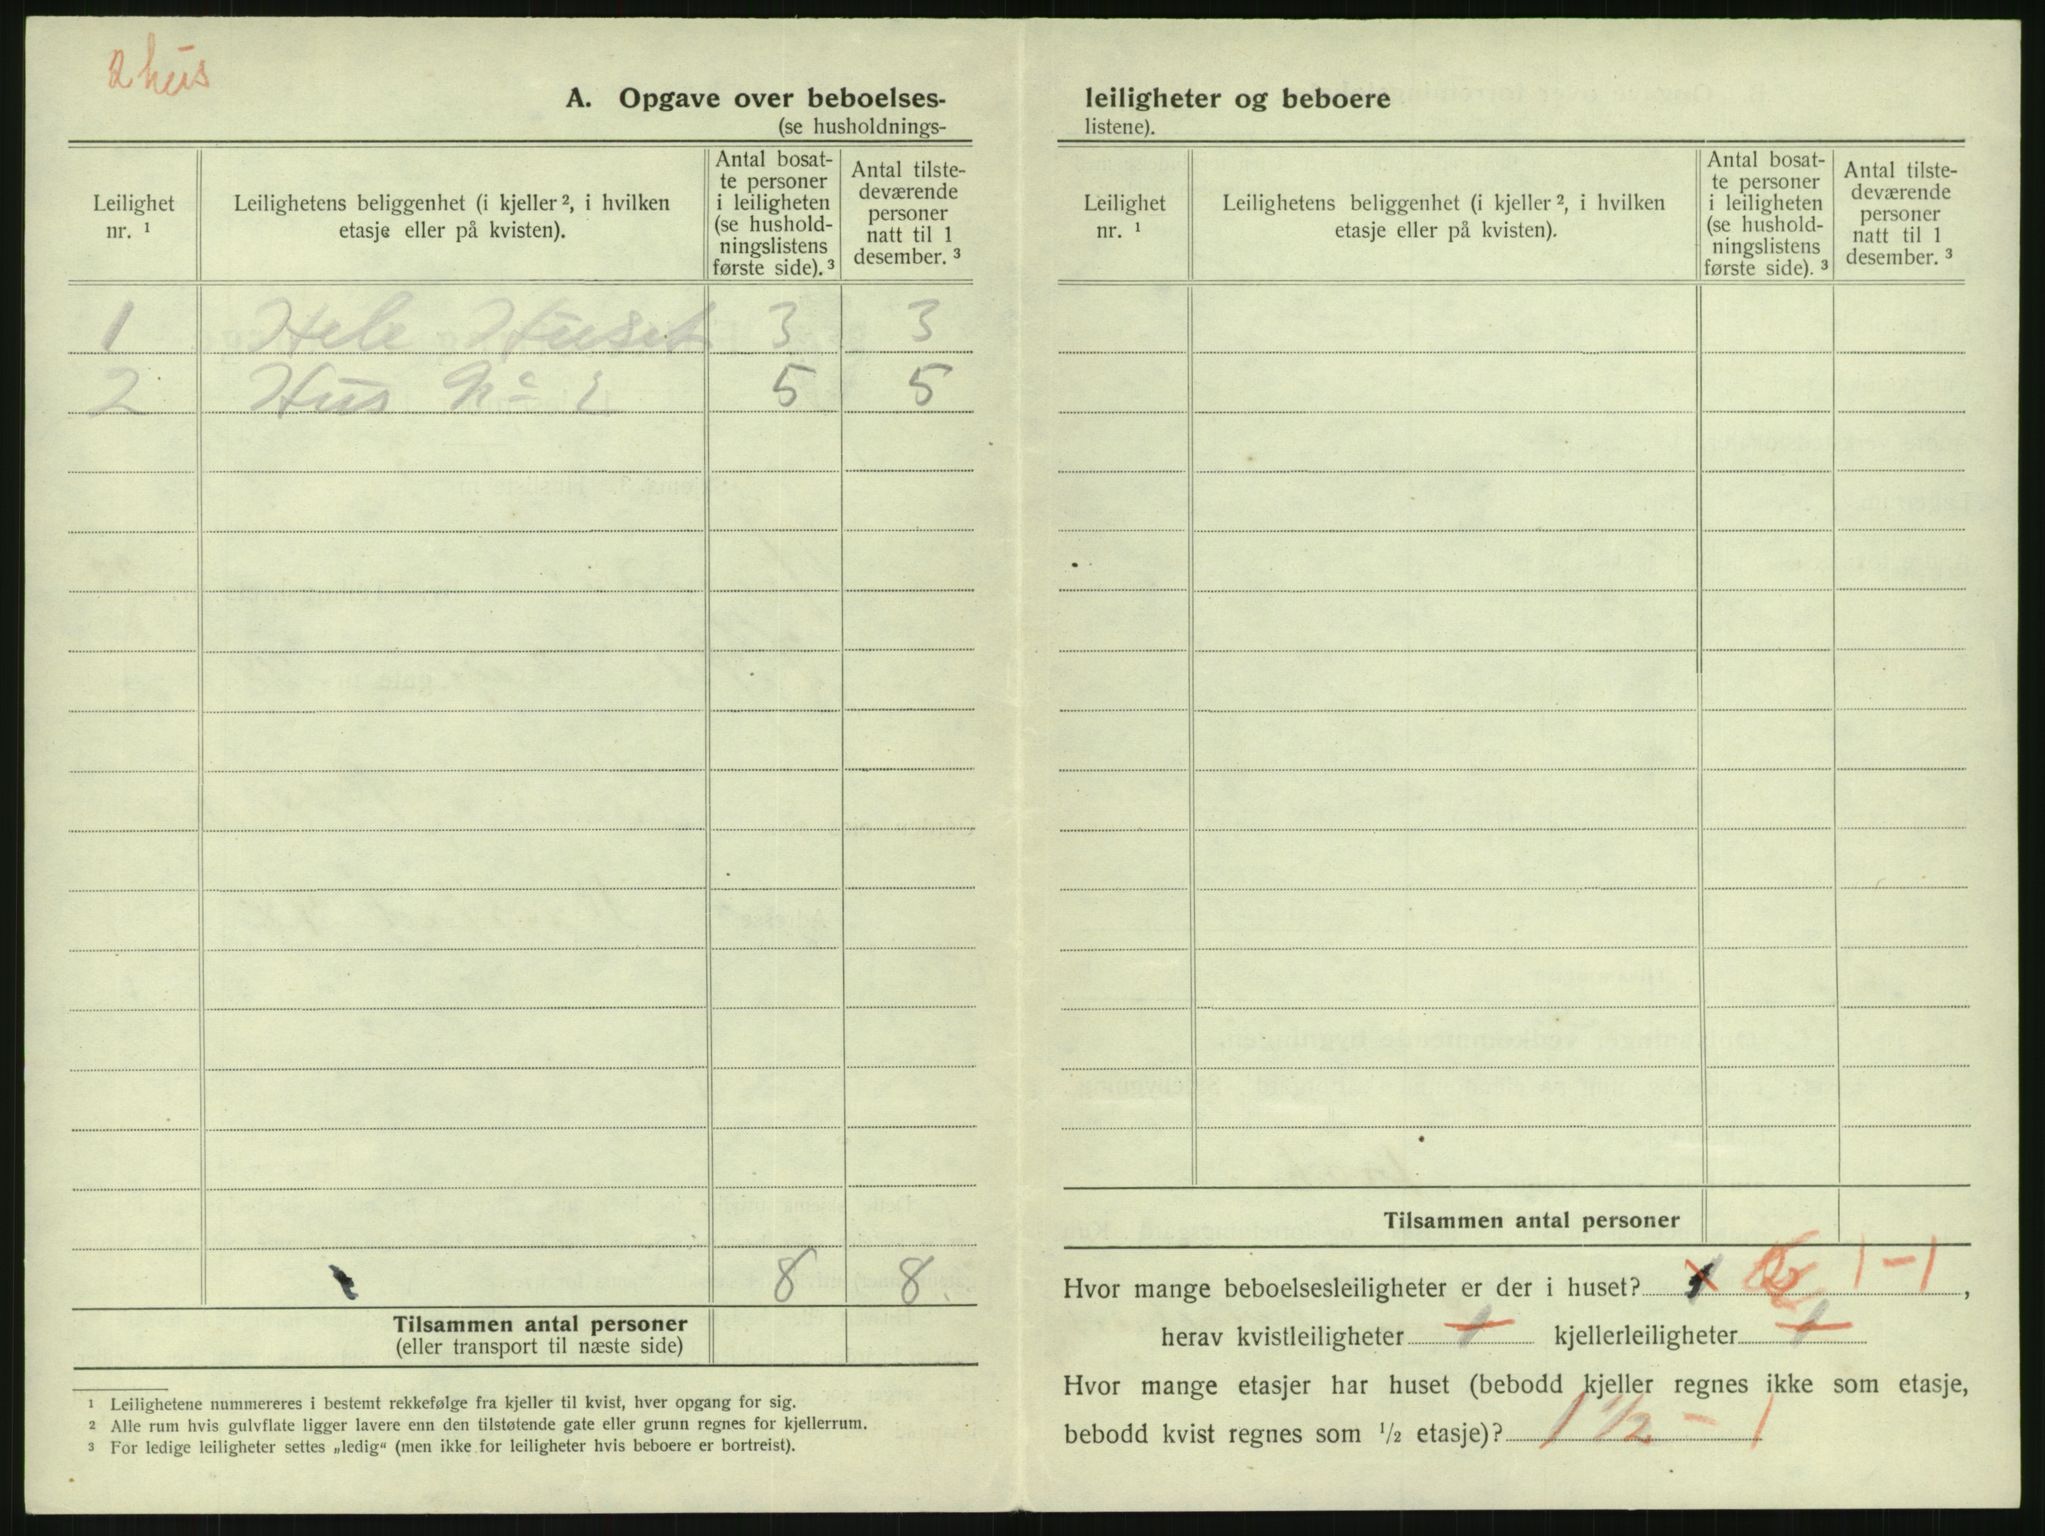 2 hus
A. Opgave over beboelses-
(se husholdnings-
Leilighet nr. ¹
Leilighetens beliggenhet (i kjeller ², i hvilken etasje eller på kvisten).
Antal bosat-
te personer
i leiligheten
(se hushold-
ningslistens
første side). ³
Antal tilste-
deværende
personer
natt til 1
desember. ³
1 Hele Huset 3 3
2 Hus No 2 5 5
8 8
Tilsammen antal personer
(eller transport til næste side)
¹ Leilighetene nummereres i bestemt rekkefølge fra kjeller til kvist, hver opgang for sig.
² Alle rum hvis gulvflate ligger lavere enn den tilstøtende gate eller grunn regnes for kjellerrum.
³ For ledige leiligheter settes „ledig“ (men ikke for leiligheter hvis beboere er bortreist).
leiligheter og beboere
listene).
Leilighet nr. ¹
Leilighetens beliggenhet (i kjeller ², i hvilken etasje eller på kvisten).
Antal bosat-
te personer
i leiligheten
(se hushold-
ningslistens
første side). ³
Antal tilste-
deværende
personer
natt til 1
desember. ³
Tilsammen antal personer
Hvor mange beboelsesleiligheter er der i huset? 1 - 1,
herav kvistleiligheter 1 kjellerleiligheter 1
Hvor mange etasjer har huset (bebodd kjeller regnes ikke som etasje,
bebodd kvist regnes som ½ etasje)? 1 ½ - 1